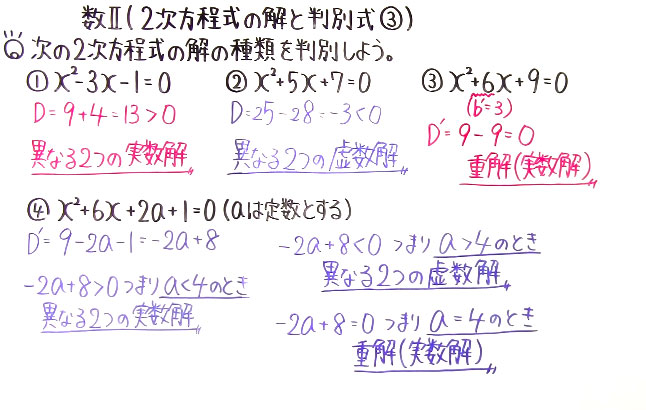 数Ⅱ(2次方程式の解と判別式③)
次の2次方程式の解の種類を判別しよう。
① x²-3x-1=0
D=9+4=13>0
異なる2つの実数解〃
② x²+5x+7=0
D=25-28=-3<0
異なる2つの虚数解〃
③ x²+6x+9=0
(b'=3)
D'=9-9=0
重解(実数解)〃
④ x²+6x+2a+1=0(aは定数とする)
D'=9-2a-1=-2a+8
-2a+8>0 つまり a<4のとき
異なる2つの実数解〃
-2a+8<0 つまり a>4のとき
異なる2つの虚数解〃
-2a+8=0 つまり a=4のとき
重解(実数解)〃